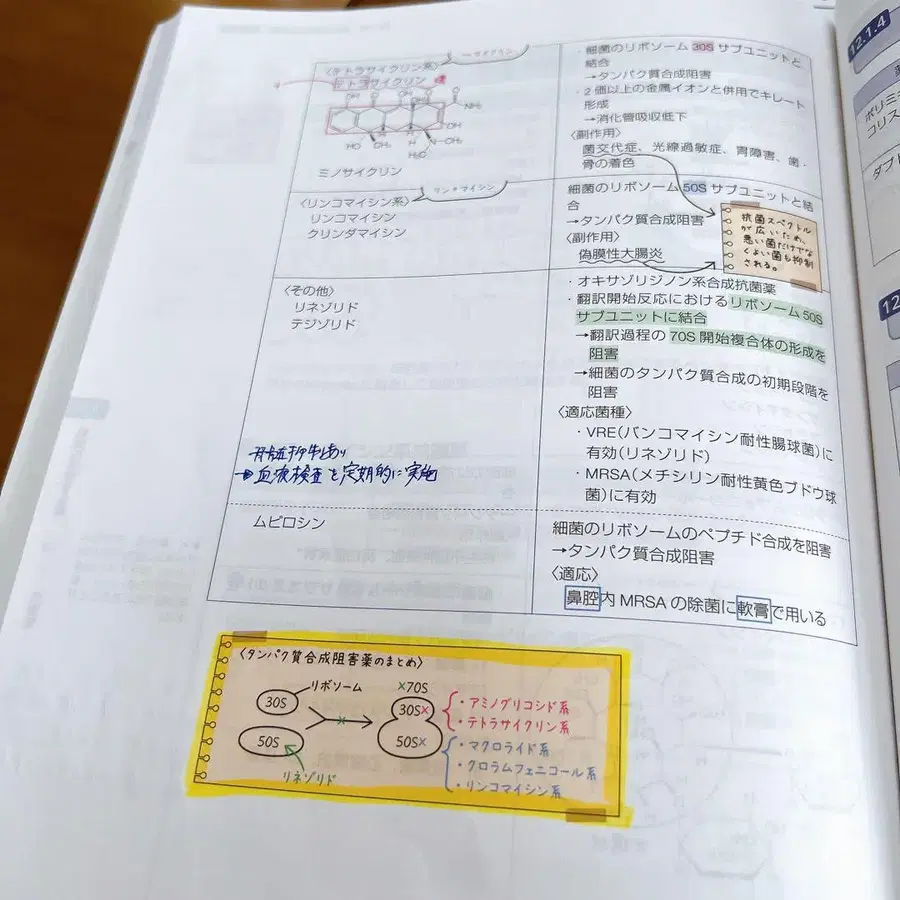 〜サイクリン
〈テトラサイクリン系〉
テトラサイクリン
OH
O
OH
O
O
NH₂
OH
HO
CH₃
H
H
N–CH₃
H₃C
ミノサイクリン
・細菌のリボソーム 30S サブユニットと
結合
→タンパク質合成阻害
・2 価以上の金属イオンと併用でキレート
形成
→消化管吸収低下
〈副作用〉
菌交代症、光線過敏症、胃障害、歯・
骨の着色
リンコマイシン
〈リンコマイシン系〉
リンコマイシン
クリンダマイシン
細菌のリボソーム 50S サブユニットと結
合
→タンパク質合成阻害
〈副作用〉
偽膜性大腸炎
抗菌スペクトル
が広いため、
悪い菌だけでな
くよい菌も抑制
される。
〈その他〉
リネゾリド
テジゾリド
・オキサゾリジノン系合成抗菌薬
・翻訳開始反応におけるリボソーム 50S
サブユニットに結合
→翻訳過程の 70S 開始複合体の形成を
阻害
→細菌のタンパク質合成の初期段階を
阻害
〈適応菌種〉
・VRE(バンコマイシン耐性腸球菌)に
有効(リネゾリド)
・MRSA(メチシリン耐性黄色ブドウ球
菌)に有効
骨髄抑制あり
→血液検査を定期的に実施
ムピロシン
細菌のリボソームのペプチド合成を阻害
→タンパク質合成阻害
〈適応〉
鼻腔内 MRSA の除菌に軟膏で用いる
〈タンパク質合成阻害薬のまとめ〉
リボソーム
×70S
30S
30S×
50S
50S×
リネゾリド
・アミノグリコシド系
・テトラサイクリン系
・マクロライド系
・クロラムフェニコール系
・リンコマイシン系
12.1.4
ポリミ
コリス
ダプト
12